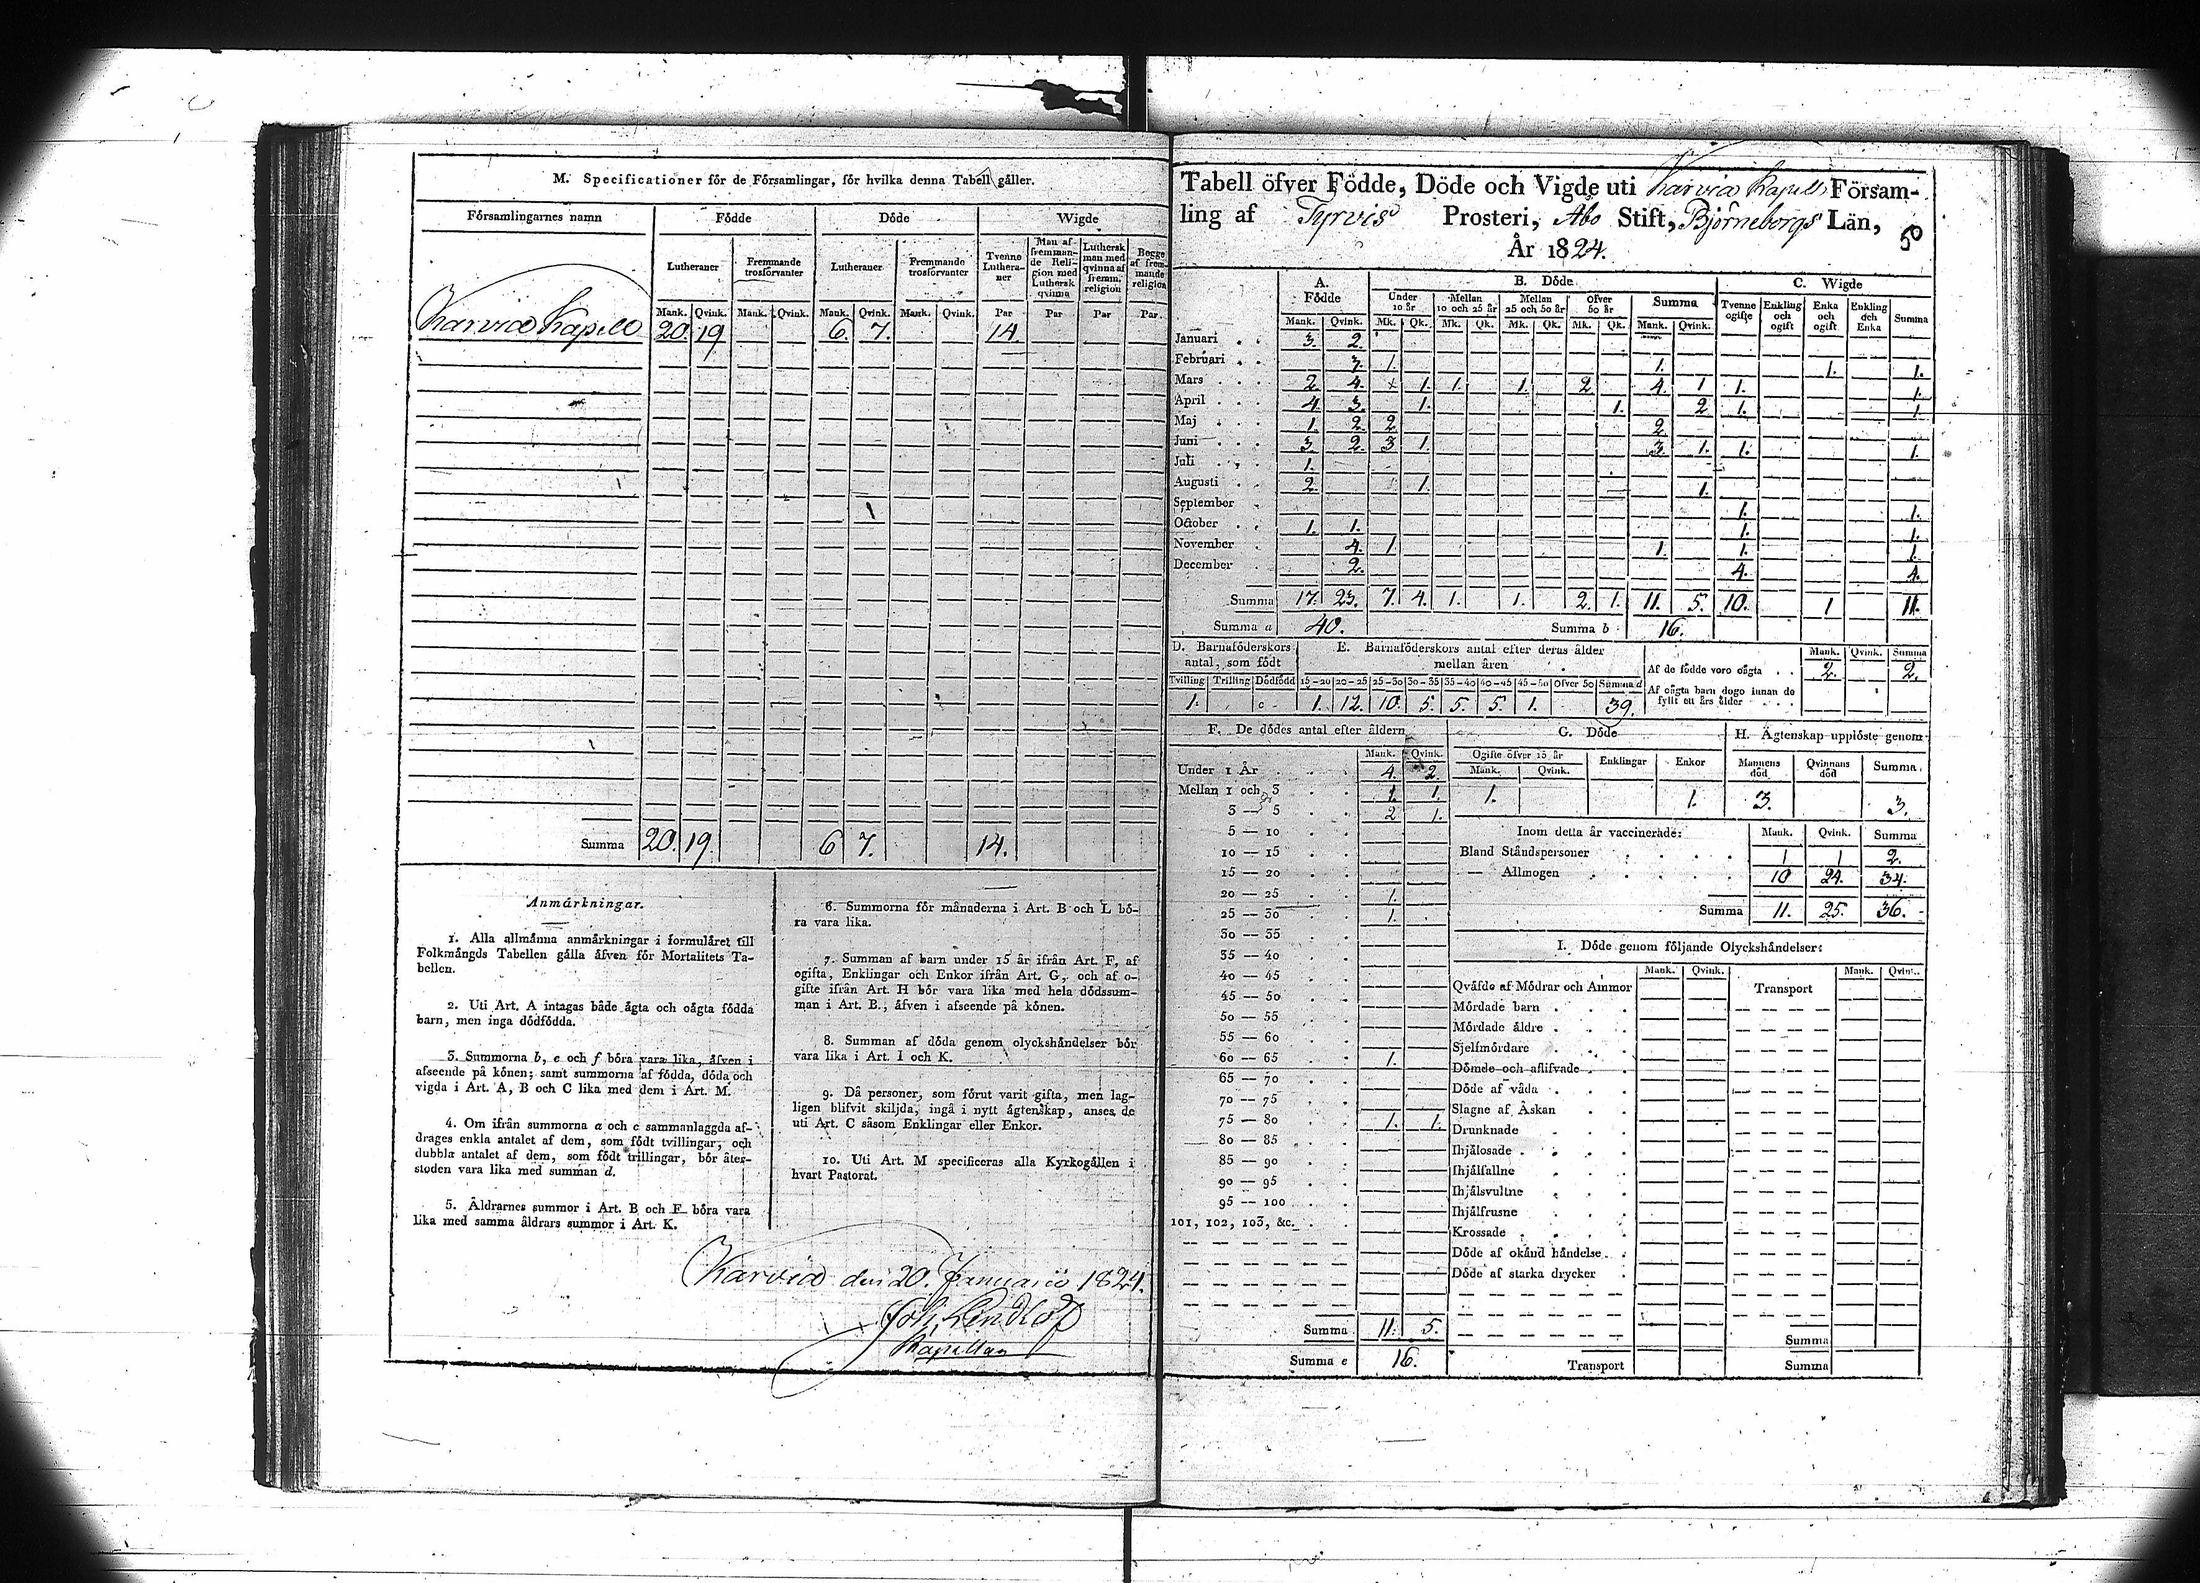 M. Specificationer för de Församlingar, för hvilka denna Tabell gäller.
Församlingarnes namn Födde Döde Wigde
Lutheraner Fremmande trosförvanter Lutheraner Fremmande trosförvanter Tvenne Lutheraner Man af fremmande Religion med Luthersk qvinna Luthersk man med qvinna af fremm. religion Begge af fremmande religion
Mank. Qvink. Mank. Qvink. Mank. Qvink. Mank. Qvink. Par Par Par Par
Karvia Kapell 20. 19 6. 7. 14.
Summa 20. 19. 6 7. 14.
Anmärkningar.
1. Alla allmänna anmärkningar i formuläret till
Folkmängds Tabellen gälla äfven för Mortalitets Ta-
bellen.
2. Uti Art. A intagas både ägta och oägta födda
barn, men inga dödfödda.
3. Summorna b, e och f böra vara lika, äfven i
afseende på könen; samt summorna af födda, döda och
vigda i Art. A, B och C lika med dem i Art. M.
4. Om ifrån summorna a och c sammanlaggda af-
drages enkla antalet af dem, som födt tvillingar, och
dubbla antalet af dem, som födt trillingar, bör åter-
stoden vara lika med summan d.
5. Åldrarnes summor i Art. B och F böra vara
lika med samma åldrars summor i Art. K.
6. Summorna för månaderna i Art. B och L bö-
ra vara lika.
7. Summan af barn under 15 år ifrån Art. F, af
ogifta, Enklingar och Enkor ifrån Art. G, och af o-
gifte ifrån Art. H bör vara lika med hela dödssum-
man i Art. B., äfven i afseende på könen.
8. Summan af döda genom olyckshändelser bör
vara lika i Art. I och K.
9. Då personer, som förut varit gifta, men lag-
ligen blifvit skiljda, ingå i nytt ägtenskap, anses de
uti Art. C såsom Enklingar eller Enkor.
10. Uti Art. M specificeras alla Kyrkogällen i
hvart Pastorat.
Karvia den 20. Januarii 1824.
Joh. Lendlöf
Kapellan
Tabell öfver Födde, Döde och Vigde uti Karvia Kapells Försam-
ling af Tyrvis Prosteri, Åbo Stift, Björneborgs Län,
År 1824.
50
A. Födde B. Döde C. Wigde
Under 10 år Mellan 10 och 25 år Mellan 25 och 50 år Öfver 50 år Summa Tvenne ogifte Enkling och ogift Enka och ogift Enkling och Enka Summa
Mank. Qvink. Mk. Qk. Mk. Qk. Mk. Qk. Mk. Qk. Mank. Qvink.
Januari 3. 2.
Februari 3. 1. 1. 1. 1.
Mars 2 4. 1. 1. 1. 2 4. 1 1. 1.
April 4 3. 1. 1. 2 1. 1.
Maj 1. 2 2 2
Juni 3. 2 3 1. 3. 1. 1. 1.
Juli 1.
Augusti 2. 1. 1.
September 1. 1.
October 1. 1. 1. 1.
November 4. 1. 1. 1. 1.
December 2. 4. 4.
Summa 17. 23. 7. 4. 1. 1. 2. 1. 11. 5. 10. 1 11.
Summa a 40. Summa b 16.
D. Barnaföderskors antal, som födt
E. Barnaföderskors antal efter deras ålder mellan åren
Mank. Qvink. Summa
Af de födde voro oägta 2. 2.
Af oägta barn dogo innan de fyllt ett års ålder
Tvilling Trilling Dödfödd 15-20 20-25 25-30 30-35 35-40 40-45 45-50 Öfver 50 Summa d
1. 1. 12. 10. 5. 5. 5. 1. 39.
F. De dödes antal efter åldern
Mank. Qvink.
Under 1 År 4. 2
Mellan 1 och 3 1. 1.
3 — 5 2 1.
5 — 10
10 — 15
15 — 20
20 — 25 1.
25 — 30 1.
30 — 35
35 — 40
40 — 45
45 — 50
50 — 55
55 — 60
60 — 65 1.
65 — 70
70 — 75
75 — 80 1. 1.
80 — 85
85 — 90
90 — 95
95 — 100
101, 102, 103, &c.
Summa 11. 5.
Summa e 16.
G. Döde
Ogifte öfver 15 år Enklingar Enkor
Mank. Qvink.
1. 1.
H. Ägtenskap upplöste genom
Mannens död Qvinnans död Summa
3. 3.
Inom detta år vaccinerade: Mank. Qvink. Summa
Bland Ståndspersoner 1 1 2.
— Allmogen 10 24. 34.
Summa 11. 25. 36.
I. Döde genom följande Olyckshändelser:
Mank. Qvink. Mank. Qvink.
Qväfde af Mödrar och Ammor Transport
Mördade barn
Mördade äldre
Sjelfmördare
Dömde och aflifvade
Döde af våda
Slagne af Åskan
Drunknade
Ihjälosade
Ihjälfallne
Ihjälsvultne
Ihjälfrusne
Krossade
Döde af okänd händelse
Döde af starka drycker
Summa
Transport Summa